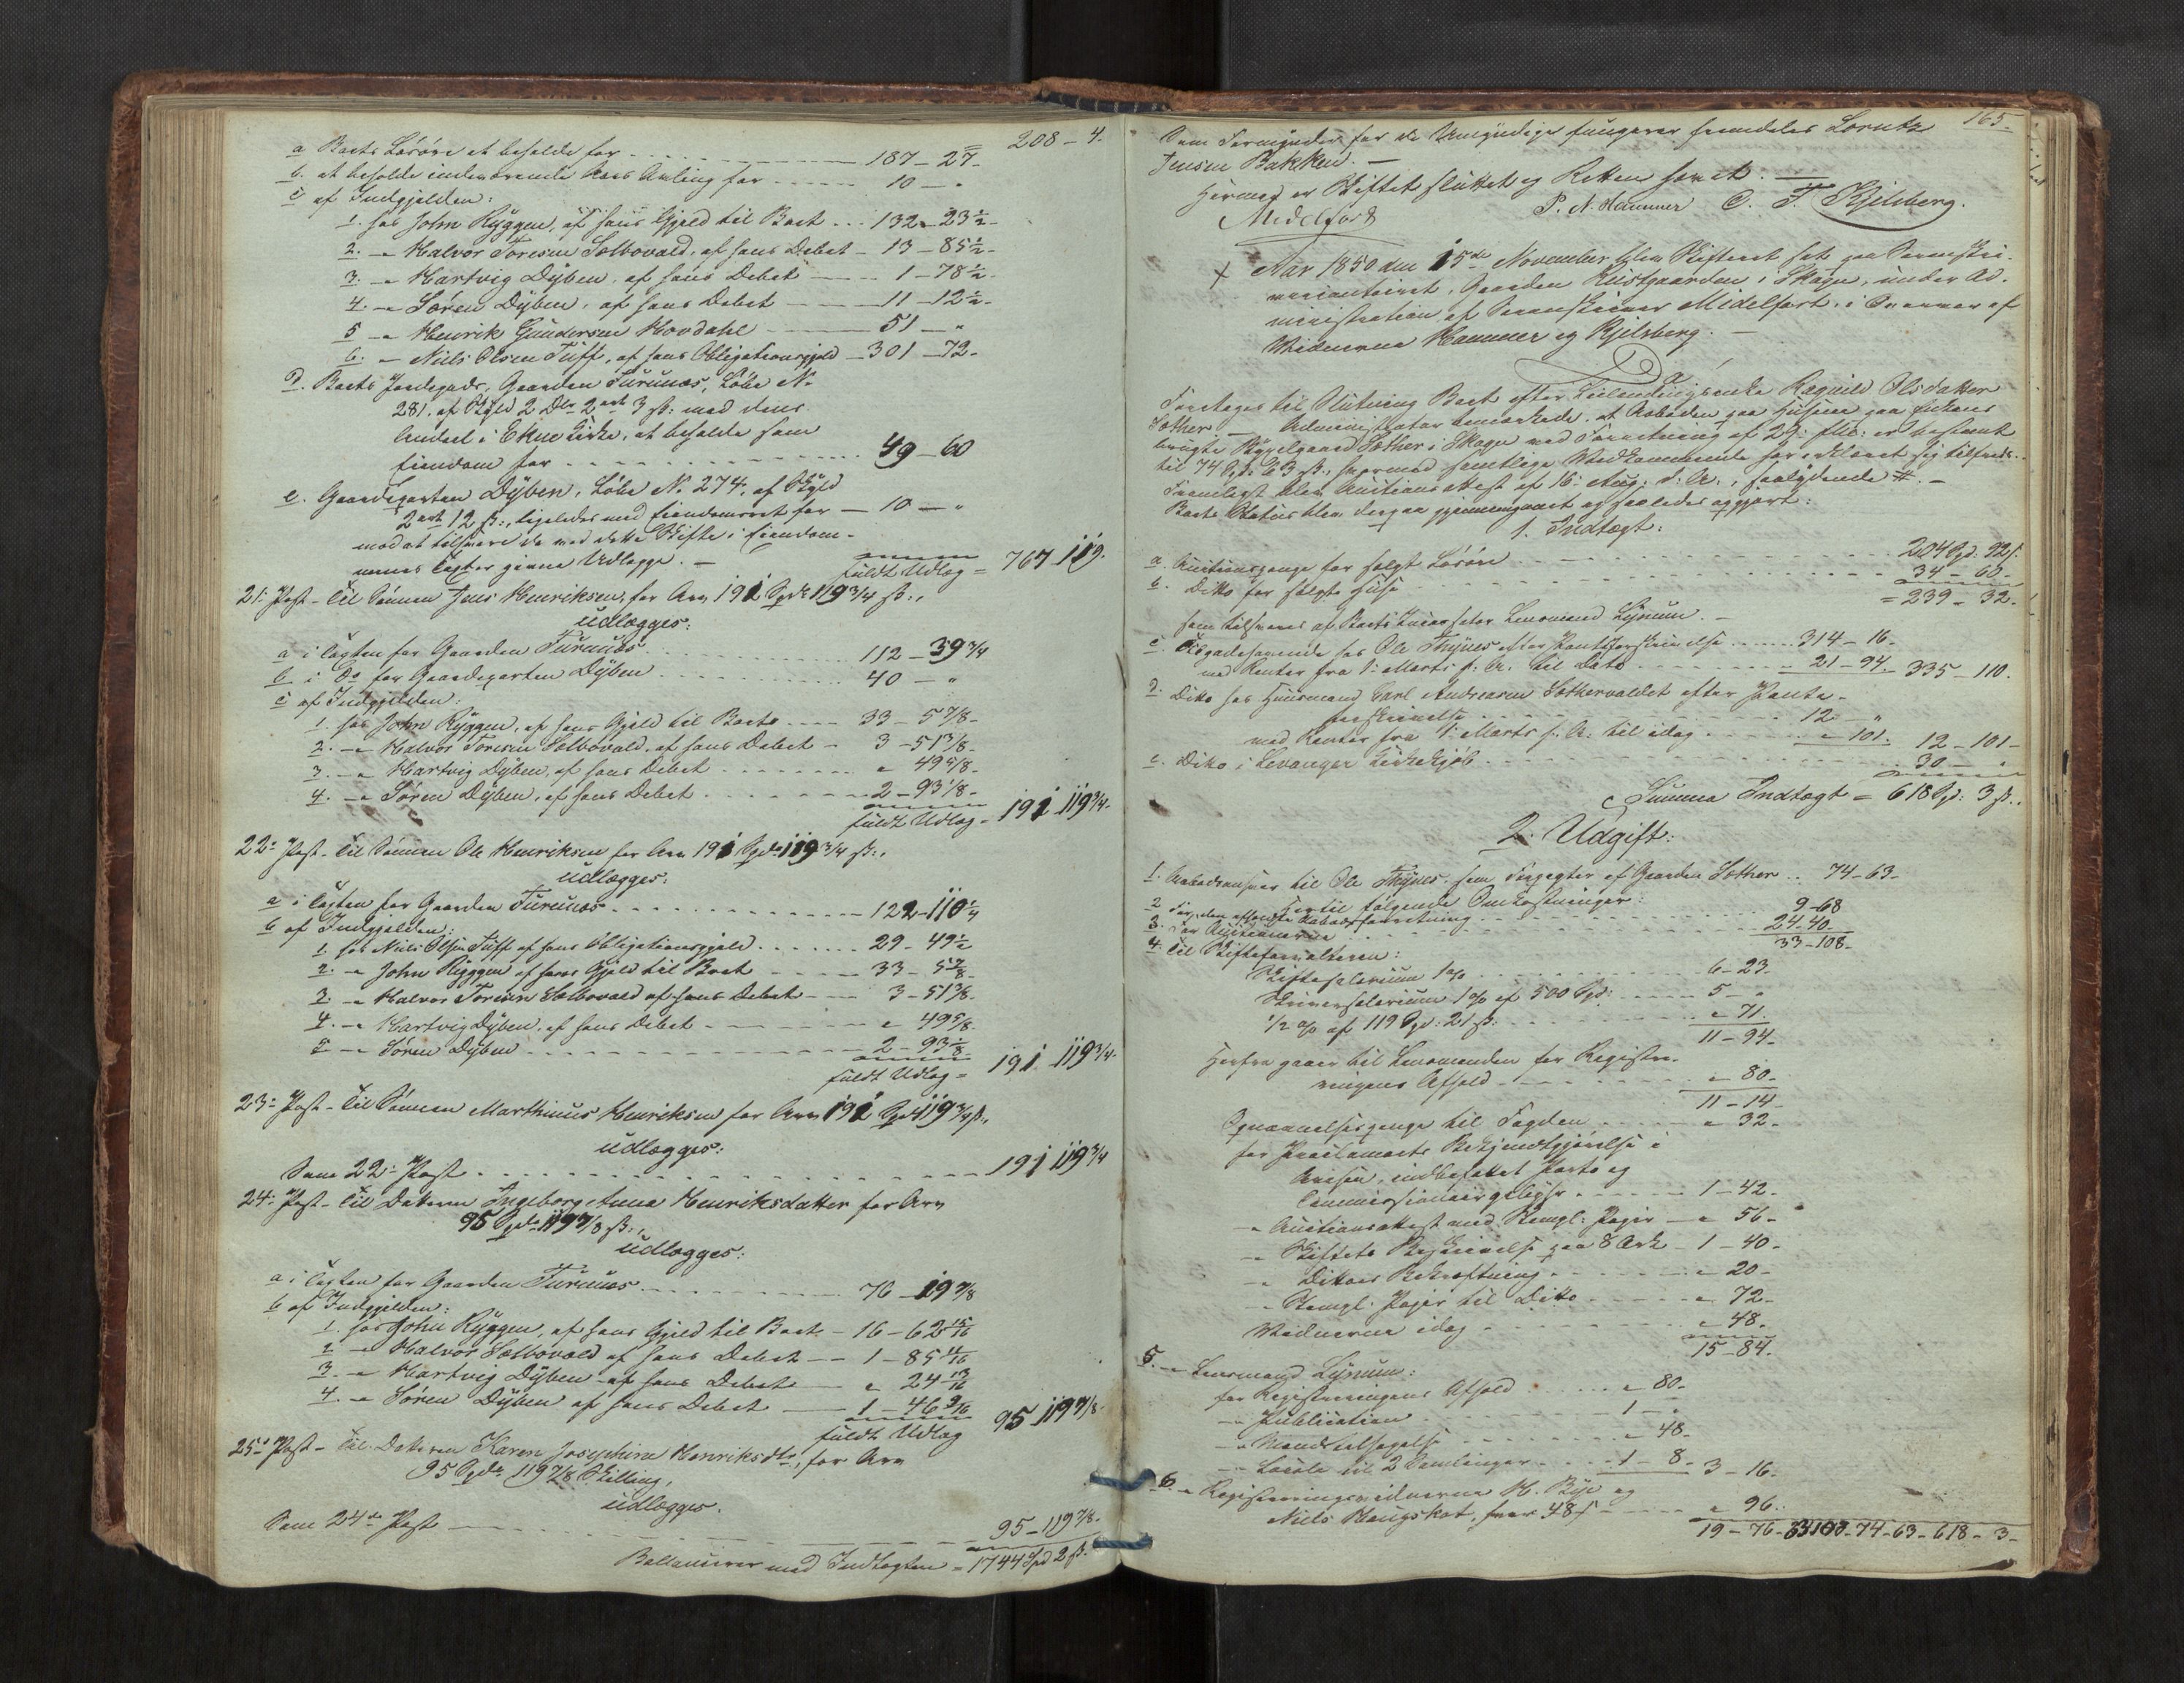 208 - 4.
a Boets Løsøre at beholde for - - - 187 - 27 -
b. at beholde indeværende Aars Avling for - - - 10 - "
c af Indgjelden:
1. hos John Ryggen, af hans Gjeld til Boet ... 132 - 23½ -
2. - " Halvor Toresen Solbovald, af hans Debet - 13 - 85½ -
3. - " Hartvig Dyben, af hans Debet - 1 - 78½ -
4. - " Søren Dyben, af hans Debet - 11 - 12½ -
5 - " Henrik Gundersen Hovdahl - 51 - "
6. - Niels Olsen Tuff, af hans Obligationsgjeld - 301 - 72 -
d. Boets Jordegods, Gaarden Furunæs, Løbe No
281. af Skyld 2 Dlr 2 ort 3 ß: med dens
Andeel i Ekne Kirke, at beholde som
Eiendom for - - - 49 - 60
e. Gaardeparten Dyben, Løbe No 274, af Skyld
2 ort 12 ß:, ligeledes med Eiendomsret for - 10 - "
mod at tilsvare de ved dette Skifte i Eiendom-
menes Taxter givne Udlægge. -
fuldt Udlæg = 767 119.
21: Post - Til Sønnen Jens Henriksen, for Arv 191 Spd 119¾ ß:,
udlægges:
a i Taxten for Gaarden Furunæs - - - 112 - 39¾
b i Do for Gaardeparten Dyben - - - 40 - "
c af Indgjelden:
1. hos John Ryggen, af hans Gjeld til Boets - 33 - 5⅞ -
2. - " Halvor Toresen Solbovald, af hans Debet - 3 - 51⅜ -
3. - " Hartvig Dyben, af hans Debet - - - " 49⅝ -
4. - " Søren Dyben, af hans Debet - - - 2 - 93⅛ -
fuldt Udlæg - 191 119¾.
22: Post - Til Sønnen Ole Henriksen for Arv 191 Spd 119¾ ß:,
udlægges:
a i Taxten for Gaarden Furunæs - - - 122 - 110¼
b af Indgjelden:
1. hos Niels Olsen Tuff af hans Obligationsgjeld - - - 29 - 49½
2. - " John Ryggen af hans Gjeld til Boet - - - 33 - 5⅞ -
3. - " Halvor Toresen Solbovald af hans Debet - - - 3 - 51⅜ -
4. - " Hartvig Dyben, af hans Debet - - - " 49⅝ -
5 - " Søren Dyben - - - 2 - 93⅛ -
fuldt Udlæg = 191. 119¾ -
23: Post - Til Sønnen Marthinus Henriksen for Arv 191 Spd 119¾ ß:,
udlægges:
Som 22: Post - - - 191 119¾
24: Post - Til Datteren Ingeborg Anna Henriksdatter for Arv
95 Spd 119⅞ ß:,
udlægges:
a i Taxten for Gaarden Furunæs - - - 76 - 19⅞
b af Indgjelden:
1. hos John Ryggen, af hans Gjeld til Boet - 16 - 62 15/16
2 - " Halvor Solbovald af hans Debet - - 1 - 85 11/16
3. - " Hartvig Dyben - af hans Debet - " 24 13/16
4. - " Søren Dyben af hans Debet - 1 - 46 9/16
fuldt Udlæg 95 119⅞.
25: Post - Til Datteren Karen Josephine Henriksdtr, for Arv
95 Spd. 119⅞ Skilling,
udlægges.
Som 24de Post - - - 95 - 119⅞ -
Ballancerer med Indtægten = 1744 Spd 2 ß.
165.
Som Formynder for de Umyndige fungerer fremdeles Lorntz
Jensen Bakken. -
Hermed er Skiftet sluttet og Retten hævet. -
Midelfart P. N. Hammer O. T. Kjelsberg.
+ Aar 1850 den 15de November blev Skifteret sat paa Sorenskri-
vercontoiret, Gaarden Rustgaarden i Skogn, under Ad-
ministration af Sorenskriver Midelfart, i Overvær af
Vidnerne Hammer og Kjelsberg. -
Foretages til Slutning Boet efter Leilendingsenke Ragnild Olsdatter
Sæther - Administrator bemærkede, at Aaboden paa Husene paa Enkens
brugte Bøxelgaard Sæther i Skogn ved Forretning af 29: f.M: er bestemt
til 74 Spd. 63 ß., hvormed samtlige Vedkommende har erklæret sig tilfreds. -
Fremlagt blev Auctionsattest af 16: Aug: d: A:, saalydende #. -
Boets Status blev derpaa gjennemgaaet og saaledes opgjort:
1. Indtægt:
a. Auctionspenge for solgt Løsøre - - - 204 Spd: 92 ß.
b. Ditto for solgte Huse - - - 34 - 60 -
= 239 - 32.
som tilsvares af Boets Incassator Lensmand Lynum. -
c. Tilgodehavende hos Ole Thynes efter Pantforskrivelse - - - 314 - 16 -
med Renter fra 1: Marts f: A: til Dato - - - 21 - 94. 335 - 110.
d. Ditto hos Huusmand Carl Andreasen Sæthervaldet efter Pante-
forskrivelse - - - 12 - "
med Renter fra 1: Marts f: A: til idag - - - " 101. 12 - 101 -
e. Ditto i Levanger Kirkekjøb - - - 30 - "
Summa Indtægt = 618 Spd: 3 ß.,
2. Udgift:
1. Aabodsansvar til Ole Thynes, som Forpagter af Gaarden Sæther .. 74 - 63 -
Hertil følgende Omkostninger:
2 For den afholdte Aabodsforretning - - - 9 - 68
3. For Auctionerne - - - 24 - 40 -
33 - 108 -
4. Til Skifteforvalteren:
Skiftesalarium 1 o/o - - - 6 - 23 -
Skriversalarium 1 o/o af 500 Spd: - - - 5 - "
½ o/o af 119 Spd: 21 ß: - - - " 71.
11 - 94 -
Herfra gaaer til Lensmanden for Registre-
ringens Afhold - - - " 80 -
11 - 14 -
Opnævnelsespenge til Fogden - - - " 32 -
for Proclamaets Bekjendtgjørelse i
Avisen, indbefattet Porto og
Commissionairgebyhr - - - 1 - 42 -
- " Auctionsattest med Stempl: Papir - " 56 -
- " Skiftets Beskrivelse paa 8 Ark - 1 - 40 -
- " Dittoes Bekræftning - - - " 20 -
- " Stempl: Papir til Ditto - - - " 72 -
Vidnerne idag - - - " 48 -
15 - 84.
5. - " Lensmand Lynum:
for Registreringens Afhold - - - " 80 -
- " Publication - - - 1 - "
- " Mandstilsigelse - - - " 48 -
- " Locale til 2 Samlinger - - - 1 - 8 - 3 - 16 -
6. - " Registreringsvidnerne H. Bye og
Niels Haugskot, hver 48 ß - - - " 96.
19 - 76 - 33 108 - 74 - 63 - 618 - 3 -